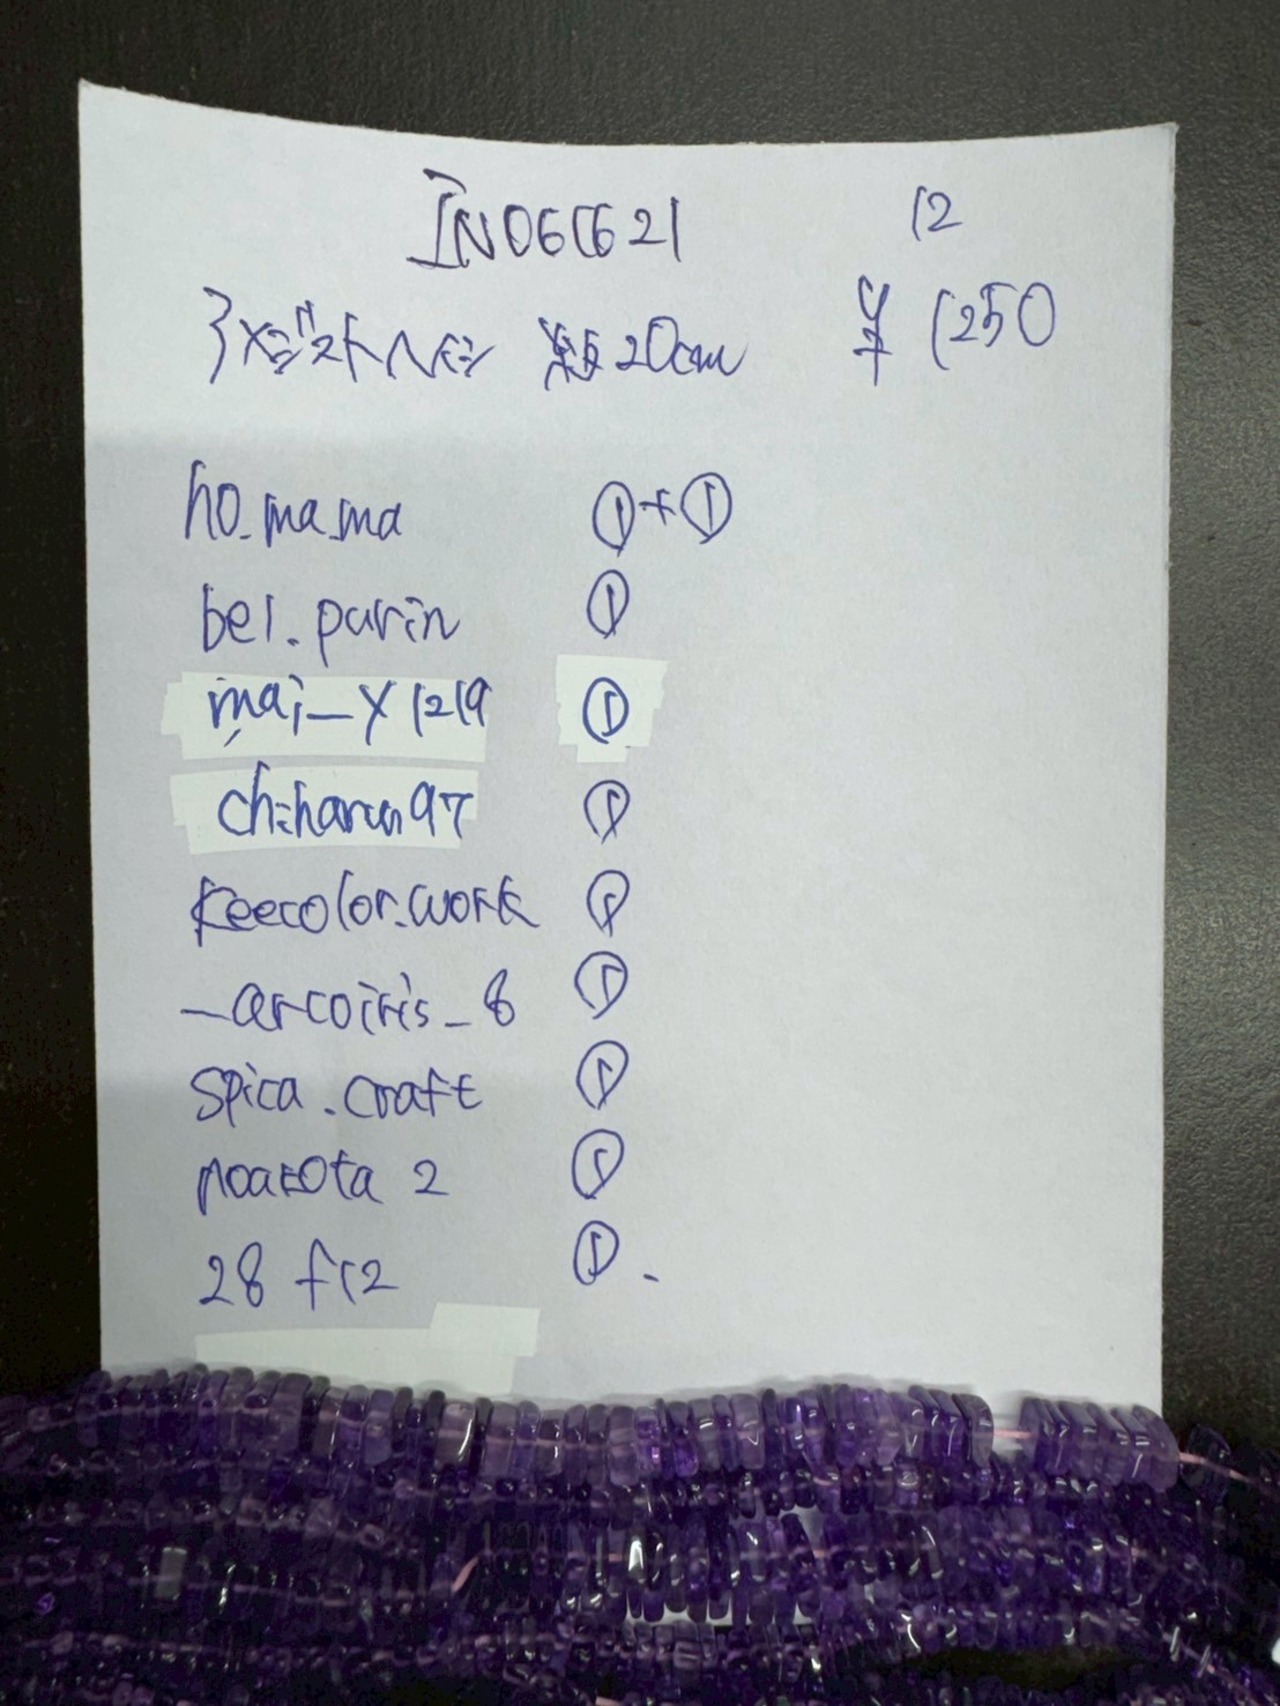 IN060621 12
アメジスト ヘイシ 約20cm ¥1250
ho_ma_ma ①+①
bel.purin ①
mai_y1219 ①
chiharun97 ①
keecolor.work ①
_arcoiris_8 ①
spica.craft ①
28 f12 ①